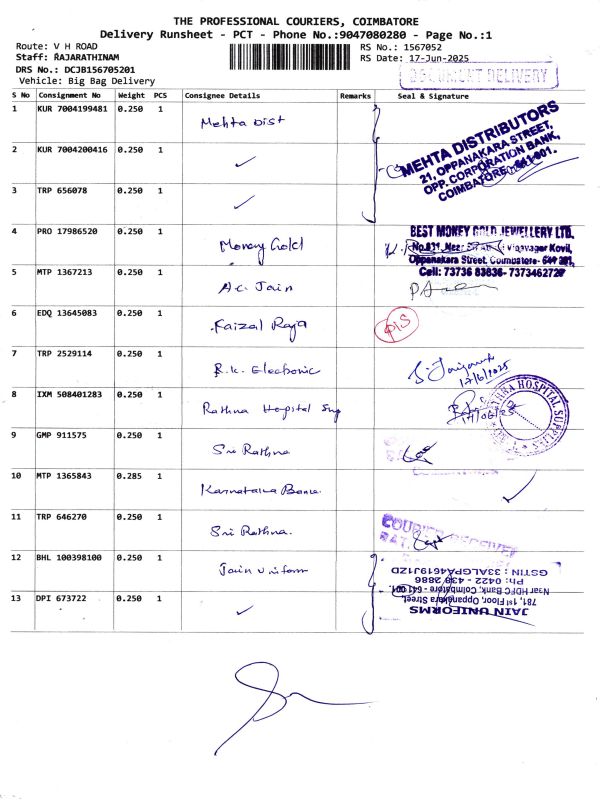 THE PROFESSIONAL COURIERS, COIMBATORE
Delivery Runsheet - PCT - Phone No.:9047080280 - Page No.:1
Route: V H ROAD
Staff: RAJARATHINAM
DRS No.: DCJB156705201
Vehicle: Big Bag Delivery
RS No.: 1567052
RS Date: 17-Jun-2025
DOCUMENT DELIVERY
S No Consignment No Weight PCS Consignee Details Remarks Seal & Signature
1 KUR 7004199481 0.250 1 Mehta Dist
MEHTA DISTRIBUTORS
21, OPPANAKARA STREET,
OPP. CORPORATION BANK,
COIMBATORE - 641 001.
2 KUR 7004200416 0.250 1 ✓
3 TRP 656078 0.250 1 ✓
4 PRO 17986520 0.250 1 Money Gold
BEST MONEY GOLD JEWELLERY LTD.
Oppanakara Street, Coimbatore- 641 001.
Cell: 73736 83836- 7373462727
5 MTP 1367213 0.250 1 Ac. Jain
6 EDQ 13645083 0.250 1 Faizal Raja
7 TRP 2529114 0.250 1 R.K. Electronic
17/6/2025
8 IXM 508401283 0.250 1 Rathna Hospital Sup
HOSPITAL SUPPLIES
9 GMP 911575 0.250 1 Sri Rathna
10 MTP 1365843 0.285 1 Karnataka Bank ✓
11 TRP 646270 0.250 1 Sri Rathna.
COURIER RECEIVED
12 BHL 100398100 0.250 1 Jain Uniform
13 DPI 673722 0.250 1 ✓
JAIN UNIFORMS
781, 1st Floor, Oppanakara Street,
Near HDFC Bank, Coimbatore - 641 001.
Ph : 0422 - 438 2886
GSTIN : 33ALGPA4619J1ZD